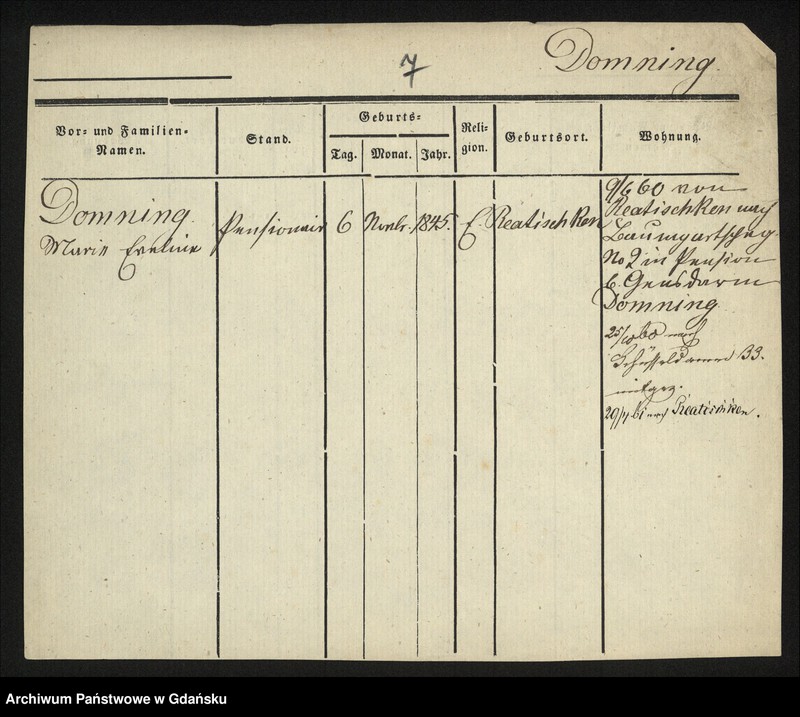 7
Domning
Vor- und Familien-
Namen.
Stand.
Geburts-
Tag.
Monat.
Jahr.
Reli-
gion.
Geburtsort.
Wohnung.
Domning.
Marie Eveline
Pensionair
6
Novbr.
1845.
E.
Reatischken
9/6 60 von
Reatischken nach
Baumgartscheg.
No 2 in Pension
b. Gensdarm
Domning.
25/10 60 nach
Schüsseldamm 33.
mitgez.
20/4 61 nach Reatischken.
Archiwum Państwowe w Gdańsku